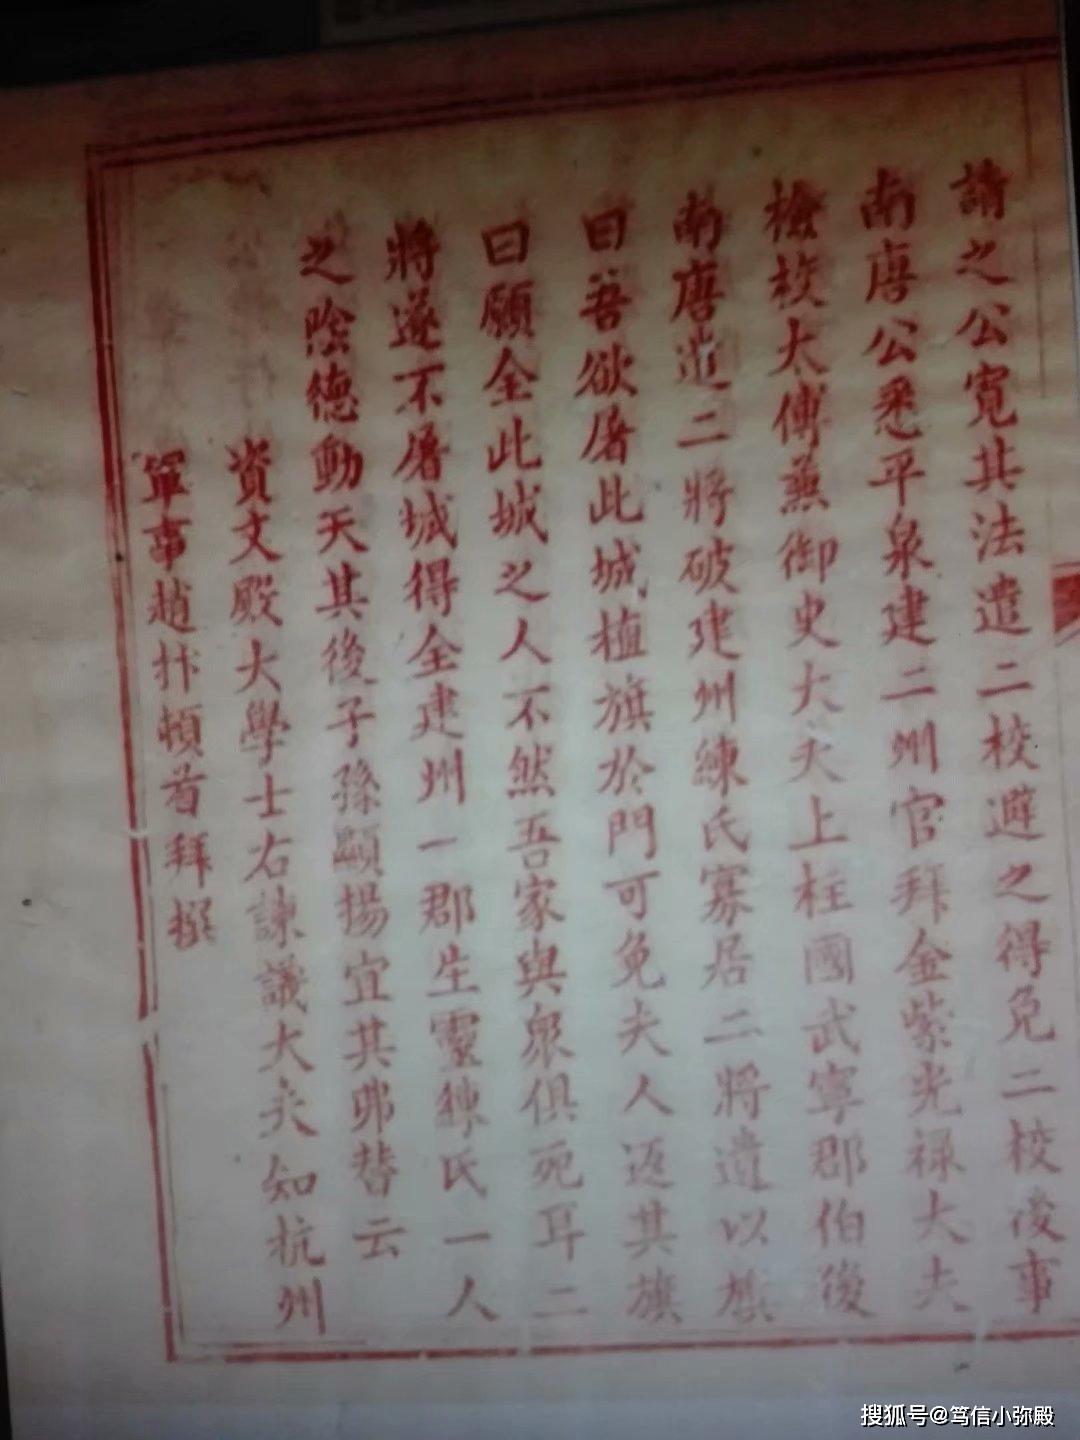 請之公寬其法遣二校避之得免二校後事
南唐公悉平泉建二州官拜金紫光禄大夫
檢校太傅蕪御史大夫上柱國武寧郡伯後
南唐遣二將破建州練氏寡居二將遺以旗
曰吾欲屠此城植旗於門可免夫人返其旗
曰願全此城之人不然吾家與衆俱死耳二
將遂不屠城得全建州一郡生靈練氏一人
之陰德動天其後子孫顯揚宜其弗替云
資文殿大學士右諫議大夫知杭州
軍事趙抃頓首拜撰
搜狐号@笃信小弥殿